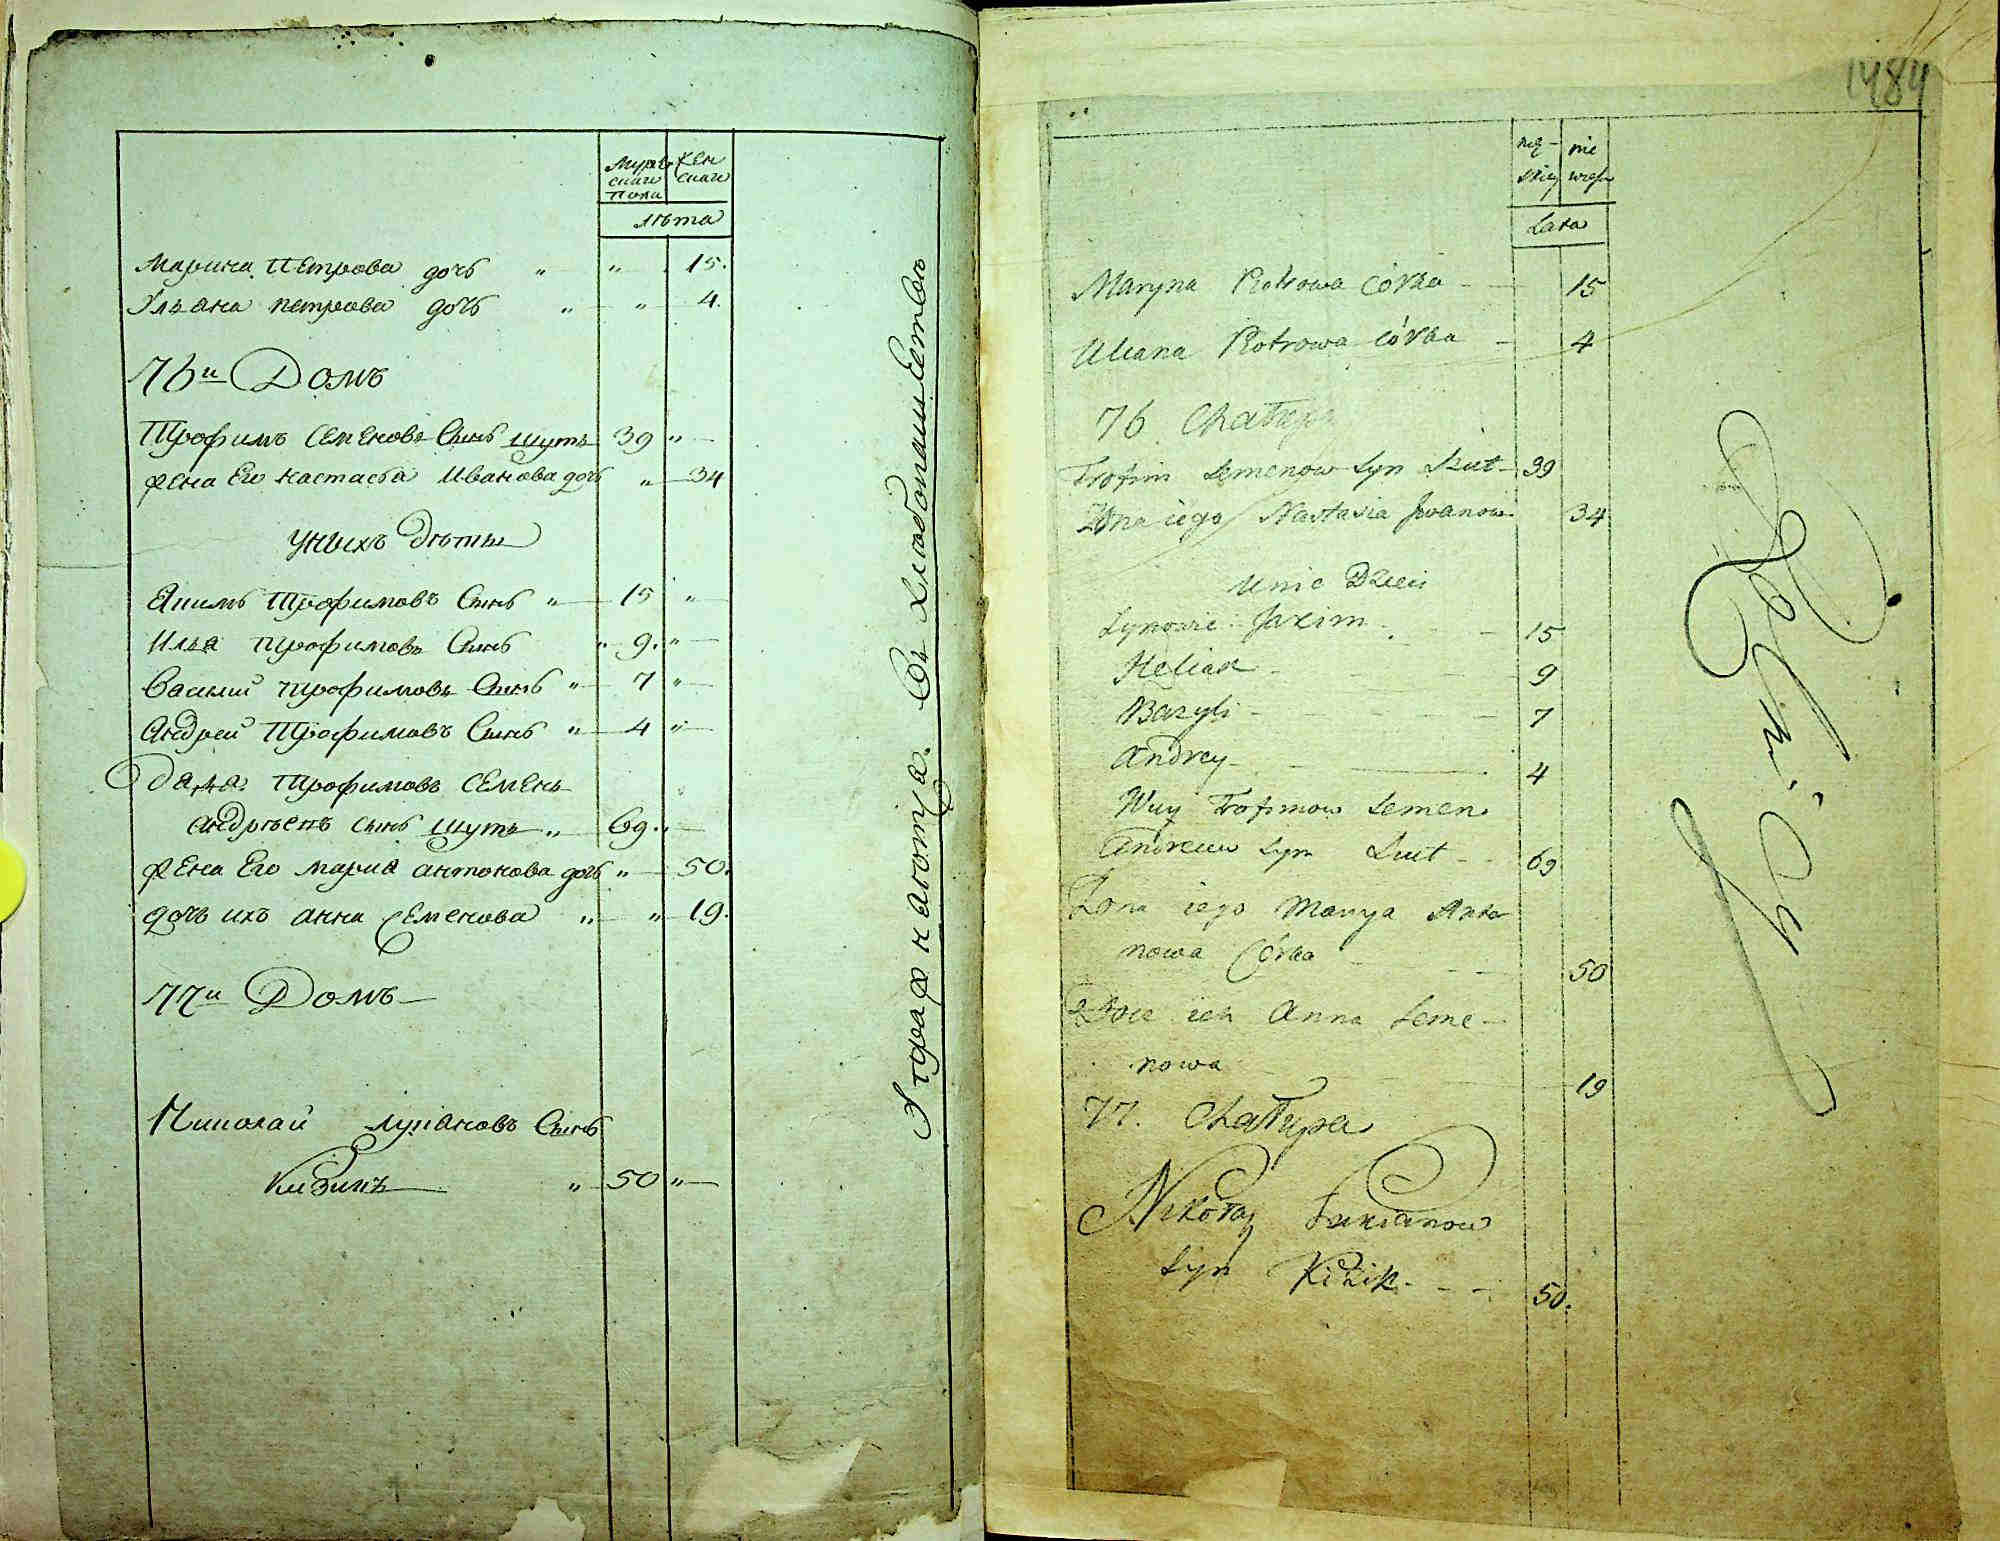 Мужескаго пола
женскаго
лѣта
Марина Петрова дочь " " 15.
Ульяна петрова дочь " " 4.
76й Домъ
Трофимъ Семеновъ Сынъ шутъ 39 "
жена Его настасья Иванова дочь " 34
унихъ дѣти
Якимъ Трофимовъ Сынъ " 15 "
Илья трофимовъ Сынъ " 9. "
Василий трофимовъ Сынъ " 7 "
Андрей Трофимовъ Сынъ " 4 "
Дядя Трофимовъ Семенъ
андрѣевъ сынъ шутъ " 69. "
жена Его мариа антонова дочь " 50.
дочь ихъ анна Семенова " " 19.
77й Домъ
Николай лукяновъ Сынъ
Кизикъ " 50 "
съ хлѣбопашествомъ
1484
męskiey
Lata
Maryna Piotrowa Córka - 15
Uliana Piotrowa Córka - 4
76 Chałupa
Trofim Semenow Syn Szut - 39
Żona iego Nastasia Jwanow 34
Unic Dzieci
Synowie Jaxim - 15
Heliasz - 9
Bazyli - 7
Andrey - 4
Wuy Trofimow Semen
Andreiew Syn Szut - 69
Żona iego Marya Anto
nowa Córka - 50
ich Anna Seme-
nowa 19
77. Chałupa
Nikołay Łukianow
Syn Kizik - - 50.